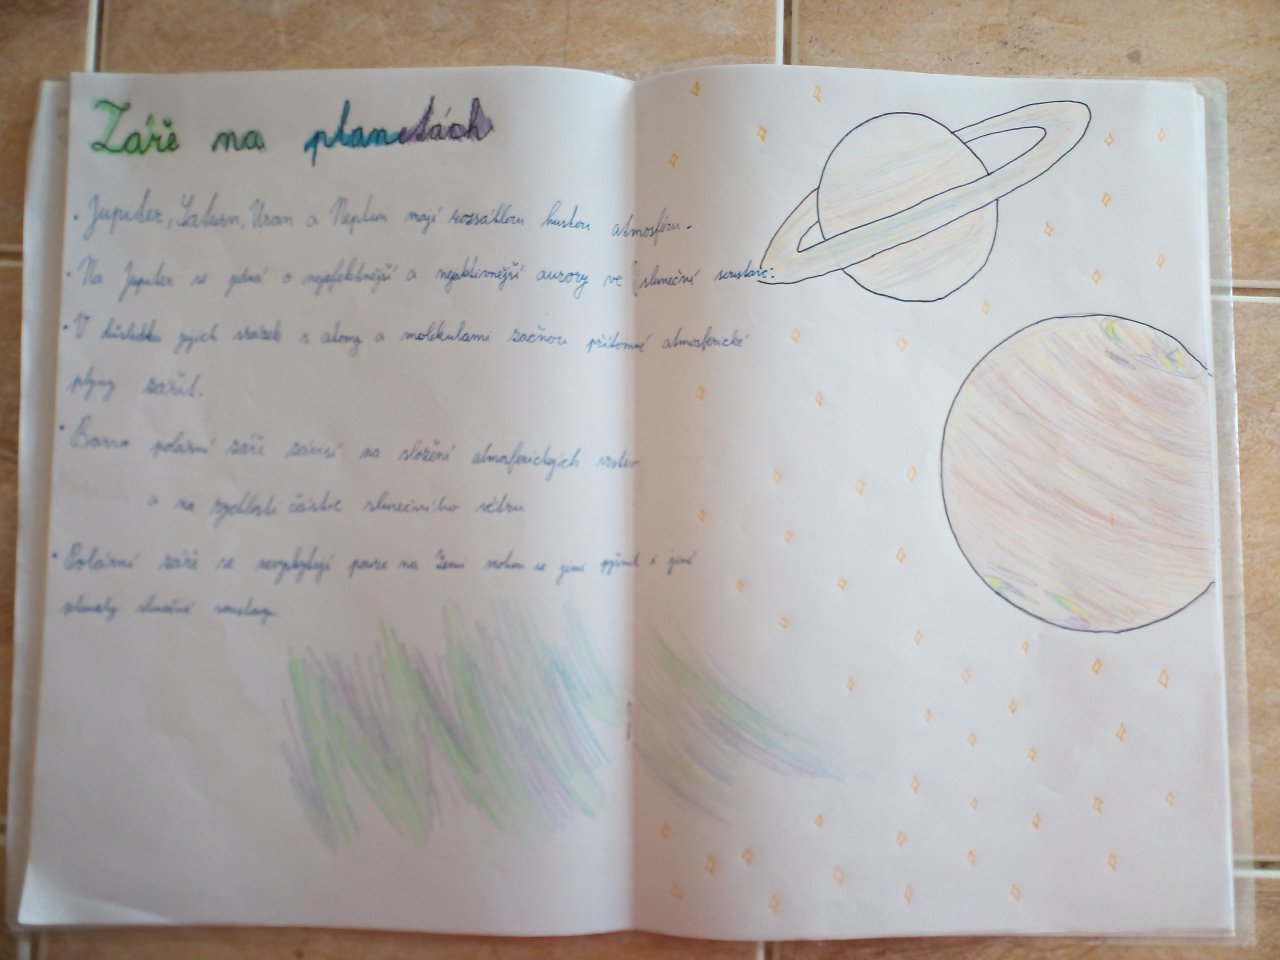 Záře na planetách
• Jupiter, Saturn, Uran a Neptun mají rozsáhlou hustou atmosféru.
• Na Jupiter se jedná o nejefektnější a nejaktivnější aurory ve sluneční soustavě.
• V důsledku jejich srážek s atomy a molekulami začnou přítomné atmosferické
plyny zářit.
• Barva polární záře závisí na složení atmosferických vrstev
a na rychlosti částic slunečního větru
• Polární záře se nevyskytují pouze na Zemi mohou se jimi pyšnit i jiné
planety sluneční soustavy.